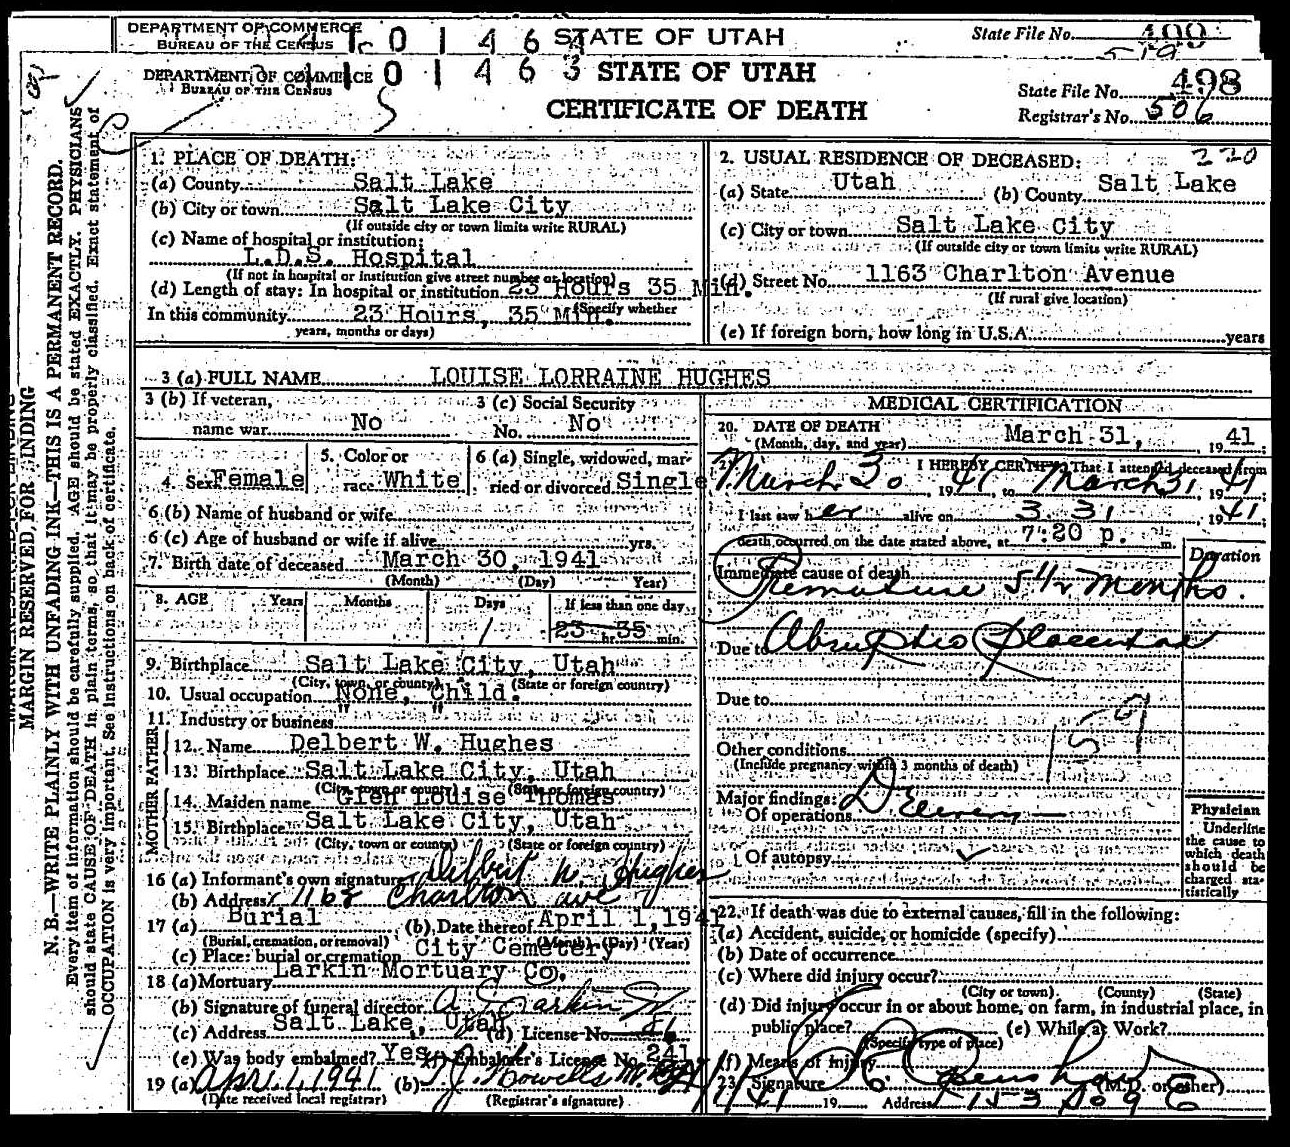 DEPARTMENT OF COMMERCE
BUREAU OF THE CENSUS
STATE OF UTAH
State File No. 499
DEPARTMENT OF COMMERCE
BUREAU OF THE CENSUS
STATE OF UTAH
CERTIFICATE OF DEATH
State File No. 498
Registrar's No. 506
MARGIN RESERVED FOR BINDING
N. B.—WRITE PLAINLY WITH UNFADING INK—THIS IS A PERMANENT RECORD.
Every item of information should be carefully supplied. AGE should be stated EXACTLY. PHYSICIANS
should state CAUSE OF DEATH in plain terms, so that it may be properly classified. Exact statement of
OCCUPATION is very important. See instructions on back of certificate.
1. PLACE OF DEATH:
(a) County Salt Lake
(b) City or town Salt Lake City
(If outside city or town limits write RURAL)
(c) Name of hospital or institution:
L.D.S. Hospital
(If not in hospital or institution give street number or location)
(d) Length of stay: In hospital or institution 23 Hours 35 Min.
(Specify whether
In this community 23 Hours, 35 Min.
years, months or days)
2. USUAL RESIDENCE OF DECEASED: 220
(a) State Utah (b) County Salt Lake
(c) City or town Salt Lake City
(If outside city or town limits write RURAL)
(d) Street No. 1163 Charlton Avenue
(If rural give location)
(e) If foreign born, how long in U.S.A. years
3 (a) FULL NAME LOUISE LORRAINE HUGHES
3 (b) If veteran, name war No
3 (c) Social Security No. No
4. Sex Female
5. Color or race White
6 (a) Single, widowed, married or divorced Single
6 (b) Name of husband or wife
6 (c) Age of husband or wife if alive yrs.
7. Birth date of deceased March 30, 1941
(Month) (Day) Year)
8. AGE Years Months Days If less than one day
1 23 hr. 35 min.
9. Birthplace Salt Lake City, Utah
(City, town, or county) (State or foreign country)
10. Usual occupation None, Child.
11. Industry or business " "
FATHER
12. Name Delbert W. Hughes
13. Birthplace Salt Lake City, Utah
(City, town or county) (State or foreign country)
MOTHER
14. Maiden name Glen Louise Thomas
15. Birthplace Salt Lake City, Utah
(City, town or county) (State or foreign country)
16 (a) Informant's own signature Delbert W. Hughes
(b) Address 1163 Charlton ave
17 (a) Burial (b) Date thereof April 1, 1941
(Burial, cremation, or removal) (Month) (Day) (Year)
(c) Place: burial or cremation City Cemetery
18 (a) Mortuary Larkin Mortuary Co.
(b) Signature of funeral director
(c) Address Salt Lake, Utah (d) License No. 46
(e) Was body embalmed? Yes (f) Embalmer's License No. 241
19 (a) Apr. 1, 1941 (b) T J Howells M.D.
(Date received local registrar) (Registrar's signature)
MEDICAL CERTIFICATION
20. DATE OF DEATH
(Month, day, and year) March 31, 1941.
21. I HEREBY CERTIFY That I attended deceased from
March 30, 1941 to March 31, 1941;
I last saw her alive on 3 31 1941;
death occurred on the date stated above, at 7:20 p. m.
Duration
Immediate cause of death
Premature 5 1/2 months.
Due to Abruptio Placentae
Due to
159
Other conditions
(Include pregnancy within 3 months of death)
Major findings:
Of operations
Of autopsy
Physician
Underline
the cause to
which death
should be
charged sta-
tistically
22. If death was due to external causes, fill in the following:
(a) Accident, suicide, or homicide (specify)
(b) Date of occurrence
(c) Where did injury occur?
(City or town) (County) (State)
(d) Did injury occur in or about home, on farm, in industrial place, in
public place? (e) While at Work?
(Specify type of place)
(f) Means of injury
23. Signature (M.D. or other)
19 Address